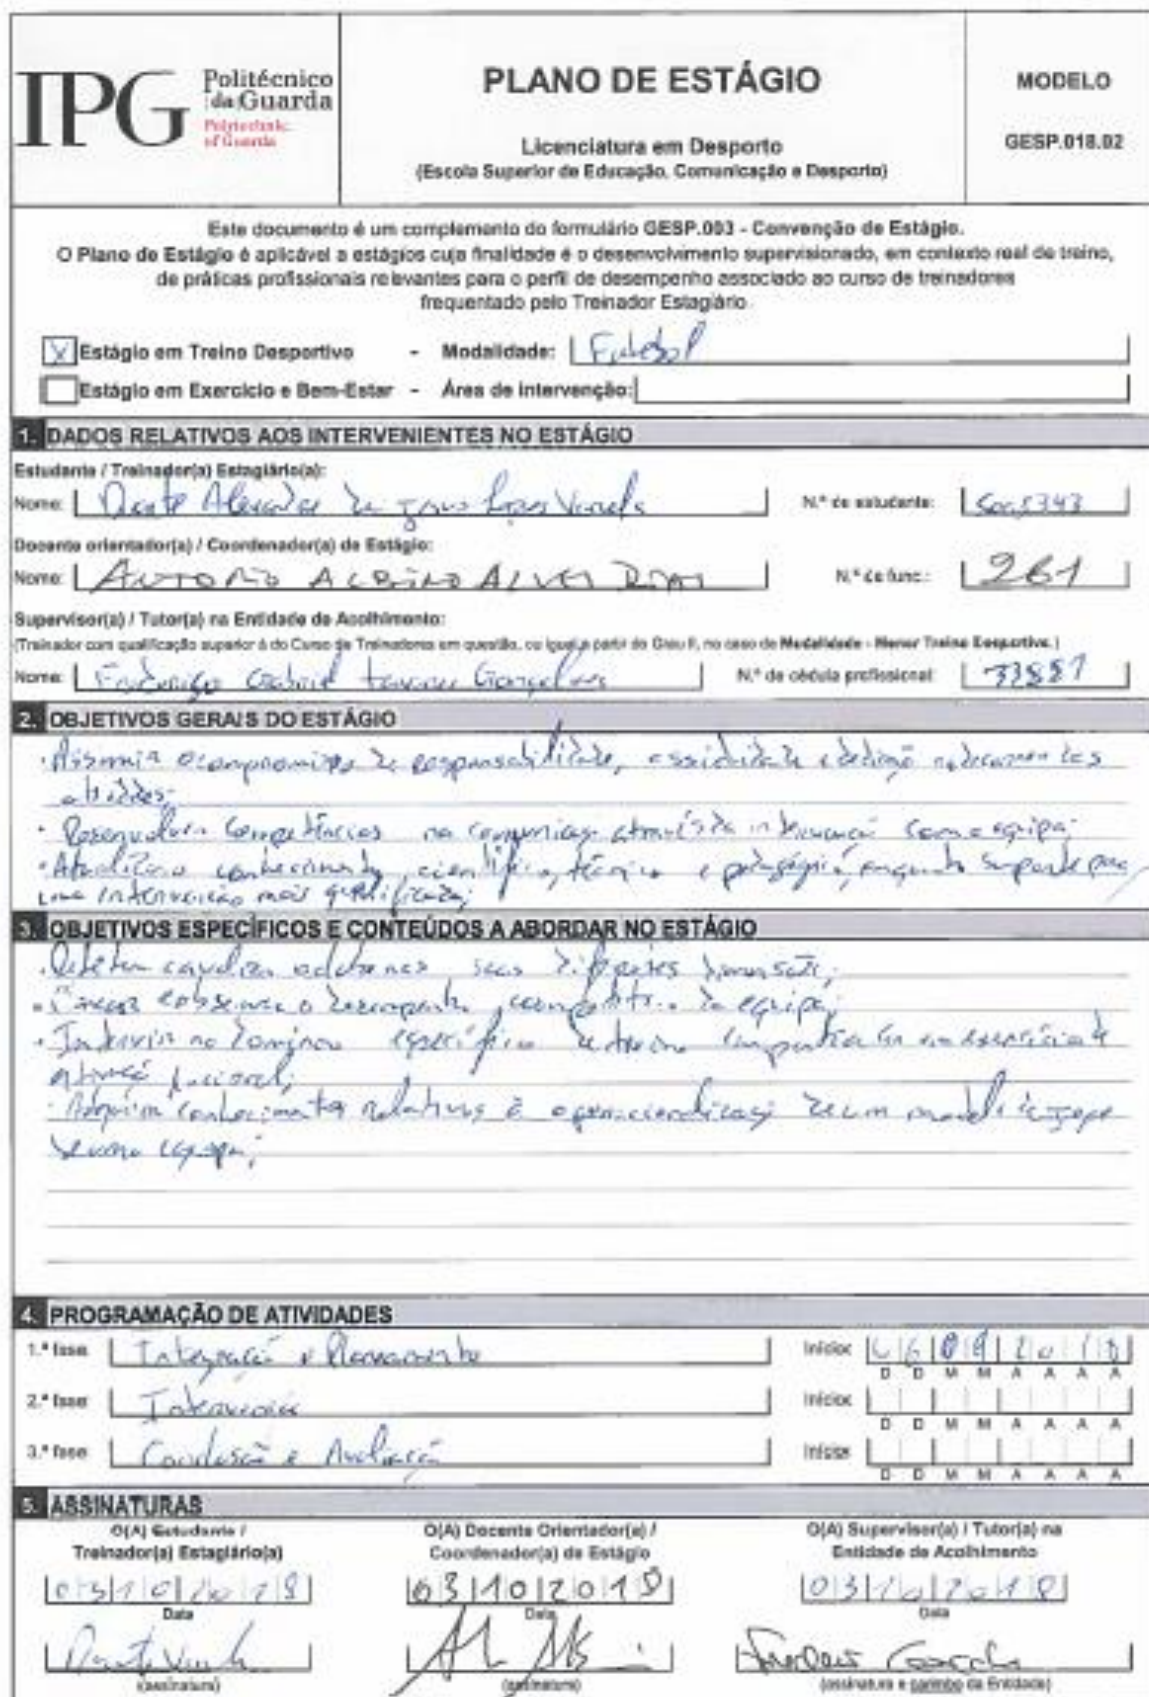 IPG
Politécnico
da Guarda
Polytechnic
of Guarda
PLANO DE ESTÁGIO
Licenciatura em Desporto
(Escola Superior de Educação, Comunicação e Desporto)
MODELO
GESP.018.02
Este documento é um complemento do formulário GESP.003 - Convenção de Estágio.
O Plano de Estágio é aplicável a estágios cuja finalidade é o desenvolvimento supervisionado, em contexto real de treino,
de práticas profissionais relevantes para o perfil de desempenho associado ao curso de treinadores
frequentado pelo Treinador Estagiário.
X Estágio em Treino Desportivo - Modalidade: Futebol
Estágio em Exercício e Bem-Estar - Área de intervenção:
1. DADOS RELATIVOS AOS INTERVENIENTES NO ESTÁGIO
Estudante / Treinador(a) Estagiário(a):
Nome: Varela N.º de estudante:
Docente orientador(a) / Coordenador(a) de Estágio:
Nome: ANTONIO ALBINO ALVES DIAS N.º de func.: 261
Supervisor(a) / Tutor(a) na Entidade de Acolhimento:
(Treinador com qualificação superior à do Curso de Treinadores em questão, ou igual a partir do Grau II, no caso de Modalidade - Menor Treino Desportivo.)
Nome: Gabriel Gonçalves N.º de cédula profissional:
2. OBJETIVOS GERAIS DO ESTÁGIO
· Assumir o compromisso de responsabilidade, assiduidade e dedicação
atividades;
· Desenvolver competências na comunicação através da intervenção com a equipa;
· Atualizar o conhecimento científico, técnico e pedagógico, enquanto suporte para
uma intervenção mais qualificada;
3. OBJETIVOS ESPECÍFICOS E CONTEÚDOS A ABORDAR NO ESTÁGIO
· nas suas diferentes dimensões;
· observar o desempenho competitivo da equipa;
· Intervir no domínio específico do treino
· Adquirir conhecimentos relativos à operacionalização de um modelo de jogo
de uma equipa;
4. PROGRAMAÇÃO DE ATIVIDADES
1.ª fase Integração e Planeamento Início: 2018
D D M M A A A A
2.ª fase Intervenção Início:
D D M M A A A A
3.ª fase Conclusão e Avaliação Início:
D D M M A A A A
5. ASSINATURAS
O(A) Estudante / O(A) Docente Orientador(a) / O(A) Supervisor(a) / Tutor(a) na
Treinador(a) Estagiário(a) Coordenador(a) de Estágio Entidade de Acolhimento
03102018 03102018 03102018
Data Data Data
(assinatura) (assinatura) (assinatura e carimbo da Entidade)